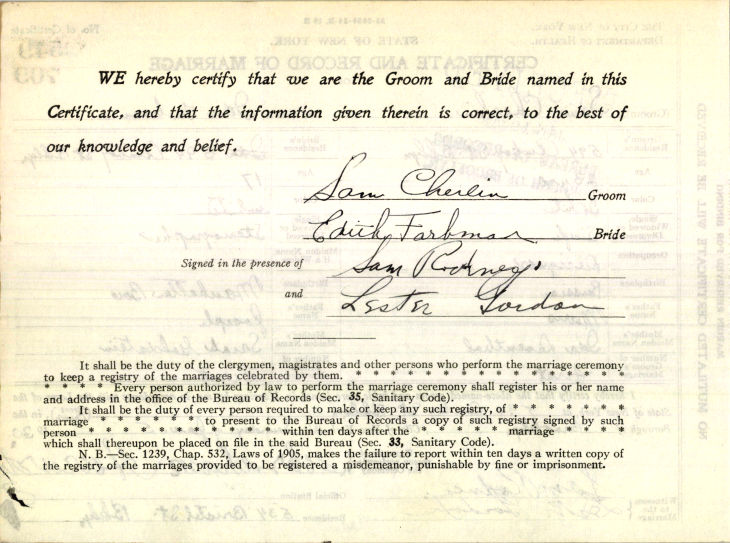 WE hereby certify that we are the Groom and Bride named in this
Certificate, and that the information given therein is correct, to the best of
our knowledge and belief.
Sam Cherlin Groom
Edith Farbman Bride
Signed in the presence of Sam Rodney
and Lester Gordon
It shall be the duty of the clergymen, magistrates and other persons who perform the marriage ceremony
to keep a registry of the marriages celebrated by them. * * * * * * * * * * * * * * *
* * * * Every person authorized by law to perform the marriage ceremony shall register his or her name
and address in the office of the Bureau of Records (Sec. 35, Sanitary Code).
It shall be the duty of every person required to make or keep any such registry, of * * * * * *
marriage * * * * * * to present to the Bureau of Records a copy of such registry signed by such
person * * * * * * * * * within ten days after the * * * * * marriage * * * *
which shall thereupon be placed on file in the said Bureau (Sec. 33, Sanitary Code).
N. B.—Sec. 1239, Chap. 532, Laws of 1905, makes the failure to report within ten days a written copy of
the registry of the marriages provided to be registered a misdemeanor, punishable by fine or imprisonment.